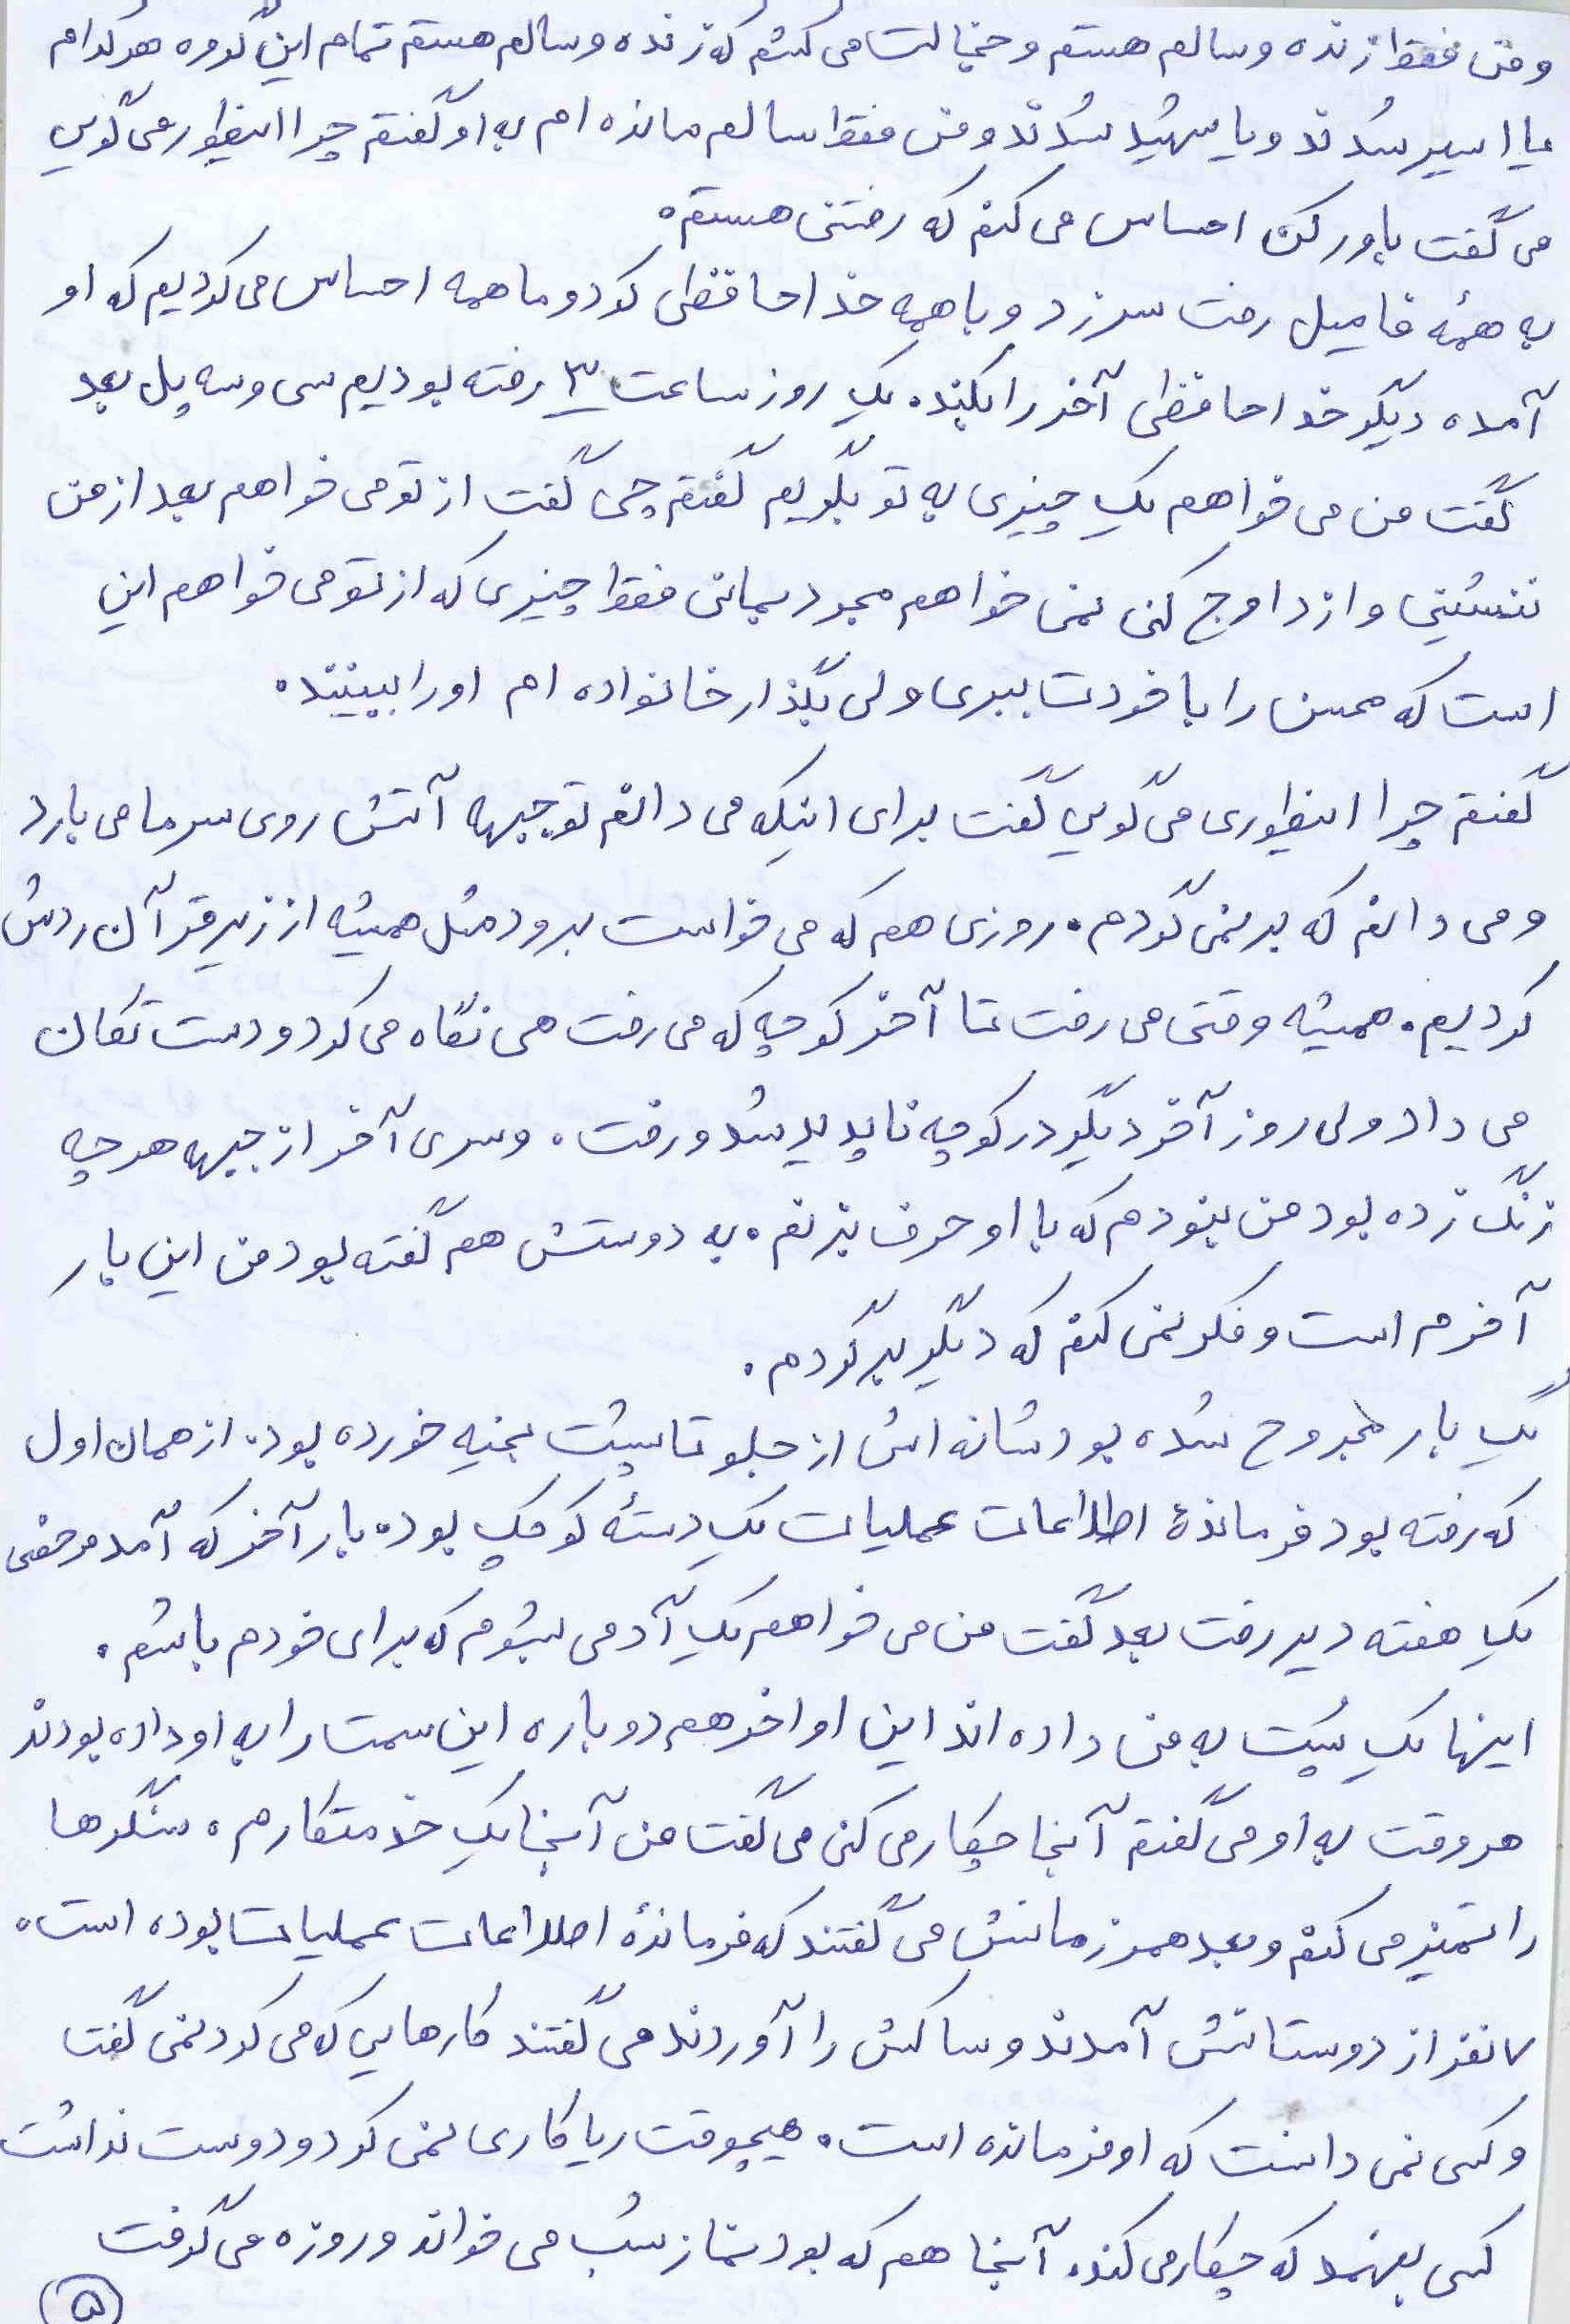 و من فقط زنده و سالم هستم و خجالت می کشم که زنده و سالم هستم تمام این گروه هر کدام
یا اسیر شدند و یا شهید شدند و من فقط سالم مانده ام به او گفتم چرا اینطور می گویی
می گفت باور کن احساس می کنم که رفتنی هستم.
به همهٔ فامیل رفت سر زد و با همه خداحافظی کرد و ما همه احساس می کردیم که او
آمده دیگر خداحافظی آخر را بکند. یک روز ساعت ۳ رفته بودیم سی وسه پل بعد
گفت من می خواهم یک چیزی به تو بگویم گفتم چی گفت از تو می خواهم بعد از من
ننشینی و ازداوج کنی نمی خواهم مجرد بمانی فقط چیزی که از تو می خواهم این
است که محسن را با خودت ببری ولی بگذار خانواده ام او را ببینند.
گفتم چرا اینطوری می گویی گفت برای اینکه می دانم تو جبهه آتش روی سر ما می بارد
و می دانم که بر نمی گردم. روزی هم که می خواست برود مثل همیشه از زیر قرآن ردش
کردیم. همیشه وقتی می رفت تا آخر کوچه که می رفت هی نگاه می کرد و دست تکان
می داد ولی روز آخر دیگر در کوچه ناپدید شد و رفت. و سری آخر از جبهه هر چه
زنگ زده بود من نبودم که با او حرف بزنم. به دوستش هم گفته بود من این بار
آخرم است و فکر نمی کنم که دیگر برگردم.
یک بار مجروح شده بود شانه اش از جلو تا پشت بخیه خورده بود. از همان اول
که رفته بود فرماندهٔ اطلاعات عملیات یک دستهٔ کوچک بود. بار آخر که آمد مرخصی
یک هفته دیر رفت بعد گفت من می خواهم یک آدمی بشوم که برای خودم باشم.
اینها یک پست به من داده اند این اواخر هم دوباره این سمت را به او داده بودند
هر وقت به او می گفتم آنجا چکار می کنی می گفت من آنجا یک خدمتکارم. سنگرها
را تمیز می کنم و بعد همرزمانش می گفتند که فرماندهٔ اطلاعات عملیات بوده است.
۷ نفر از دوستانش آمدند و ساکش را آوردند می گفتند کارهایی که می کرد نمی گفت
و کسی نمی دانست که او فرمانده است. هیچوقت ریاکاری نمی کرد و دوست نداشت
کسی بفهمد که چکار می کند. آنجا هم که بود نماز شب می خواند و روزه می گرفت
۵